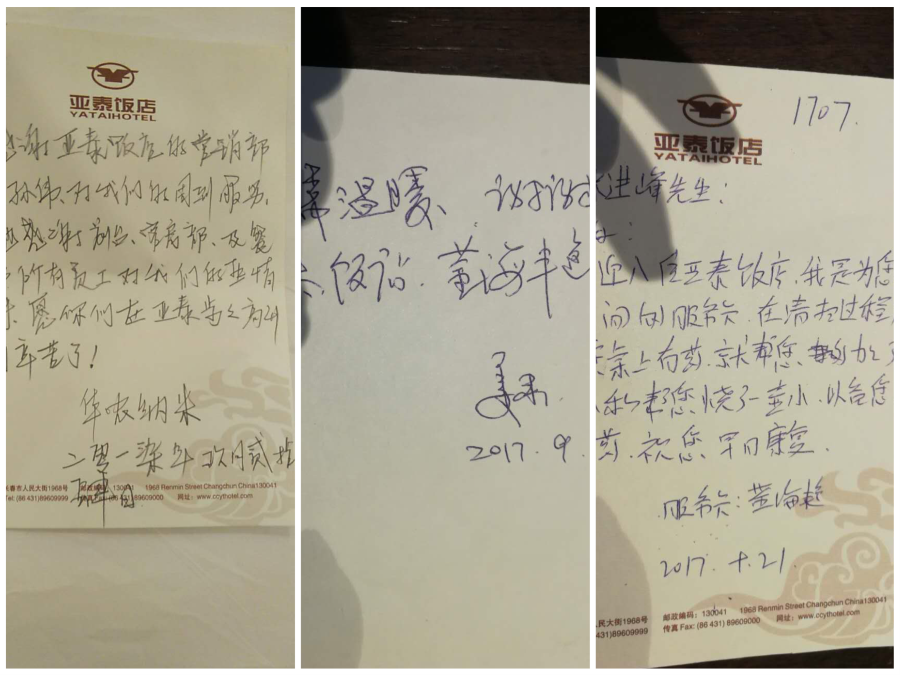 亚泰饭店
YATAIHOTEL
感谢亚泰饭店的营销部
孙伟、对我们的周到服务,
感谢前台、客房部、及
所有员工对我们的热情
你们在亚泰
辛苦了!
华农纳米
长春市人民大街1968号 邮政编码:130041 1968 Renmin Street Changchun China130041
Tel: (86 431)89609999 传真 Fax: (86 431)89609000 网址:www.ccythotel.com
常温暖、谢谢
饭店.董海
2017.9.
亚泰饭店
YATAIHOTEL
1707.
进峰先生:
迎入住亚泰饭店,我是为您
间的服务员.在清扫过程,
桌上有药,就帮您
帮您烧了一壶小.以备您
药,祝您早日康复.
服务员:董海
2017.十.21.
人民大街1968号 邮政编码:130041 1968 Renmin Street Changchun China130041
431)89609999 传真 Fax: (86 431)89609000 网址:www.ccythotel.com